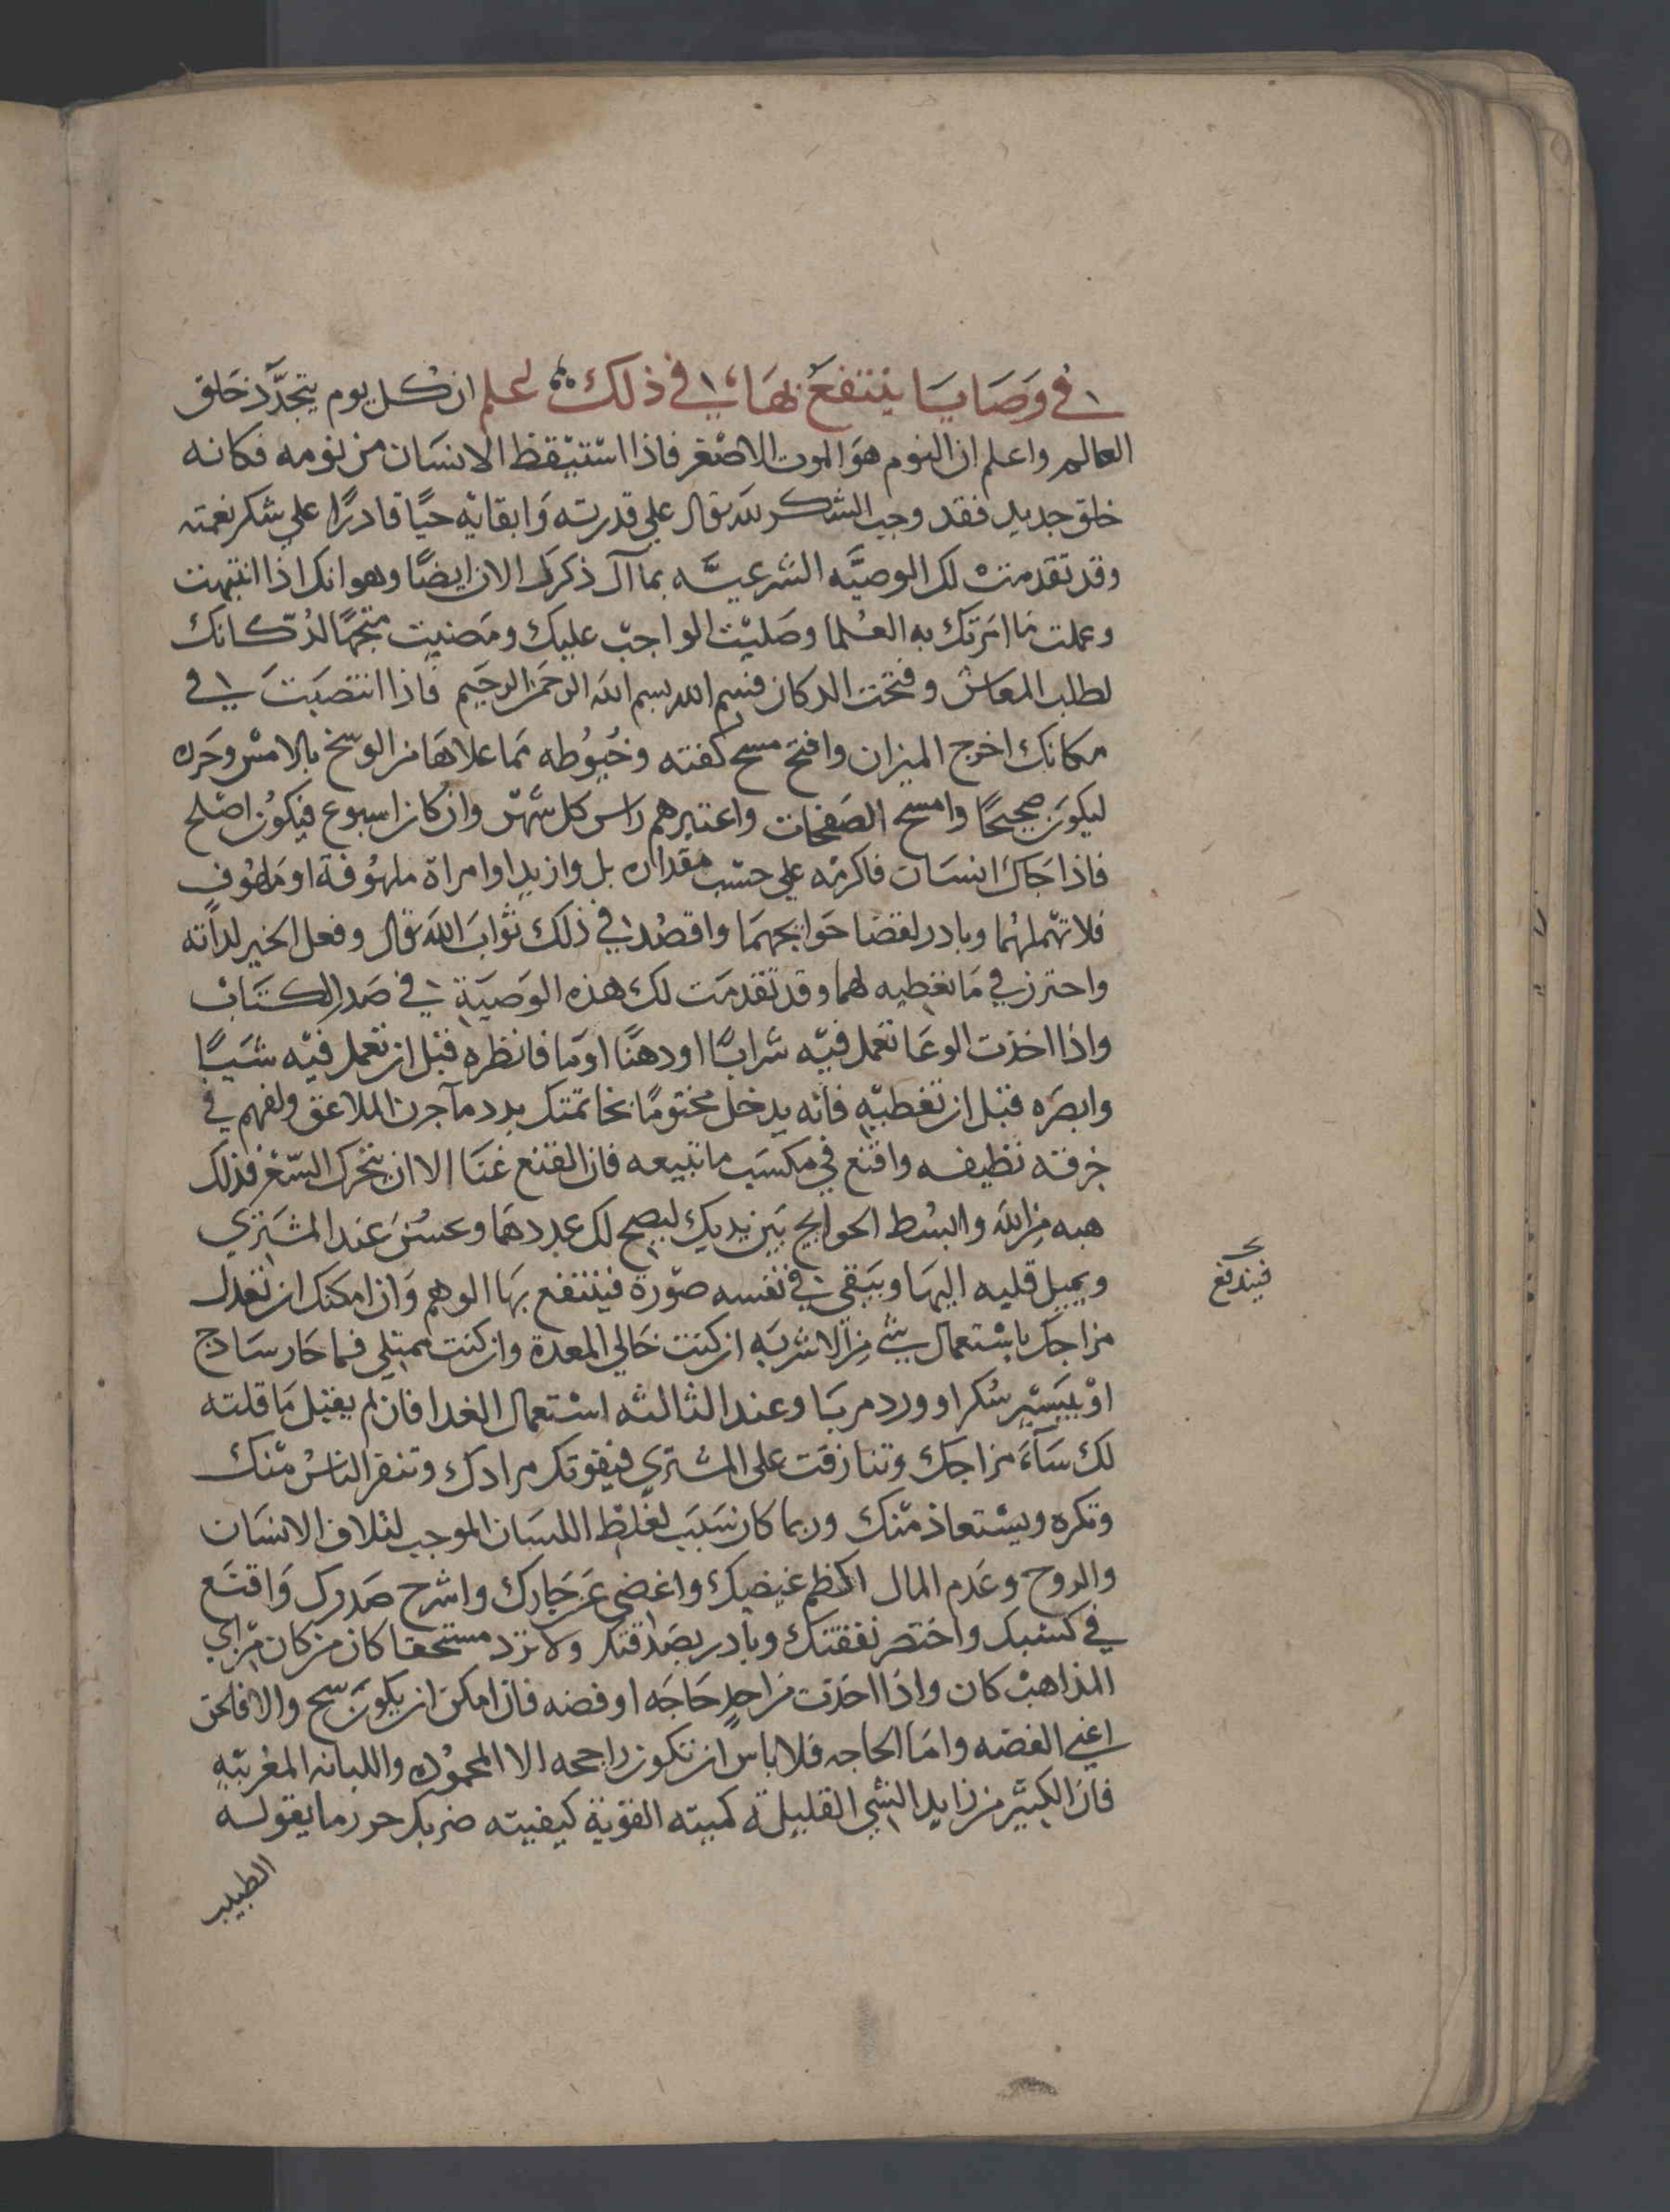 في وصايا ينتفع بها في ذلك اعلم ان كل يوم يتجدد خلق
العالم واعلم ان النوم هو الموت الاصغر فاذا استيقظ الانسان من نومه فكانه
خلق جديد فقد وجب الشكر لله تعالى على قدرته وابقايه حيا قادرا على شكر نعمته
وقد تقدمت لك الوصيه الشرعيه بما اذكرك الان ايضا وهو انك اذا انتبهت
وعملت ما امرتك به العلما وصليت الواجب عليك ومضيت متجها لدكانك
لطلب المعاش وفتحت الدكان فسم الله بسم الله الرحمن الرحيم فاذا انتصبت في
مكانك اخرج الميزان وافتح مسح كفته وخيوطه مما علاها من الوسخ بالامس وحرره
ليكون صحيحا وامسح الصفحات واعتبرهم راس كل شهر وان كان اسبوع فيكون اصلح
فاذا جاك انسان فاكرمه على حسب مقداره بل وازيد او امراة ملهوفة او ملهوف
فلا تهملهما وبادر لقضا حوايجهما واقصد في ذلك ثواب الله تعالى وفعل الخير لذاته
واحترز في ما تعطيه لهما وقد تقدمت لك هذه الوصية في صدر الكتاب
واذا اخذت الوعا تعمل فيه شرابا او دهنا او ما فانظره قبل ان تعمل فيه شيا
وابصره قبل ان تغطيه فانه يدخل مختوما بخاتمتك الملاعق ولفهم في
خرقه نظيفه واقنع في مكسب ما تبيعه فان القنع غنا الا ان يتحرك السعر فذلك
هبه من الله وابسط الحوايج بين يديك ليصح لك عددها وعسن عند المشتري
ويميل قلبه اليها ويبقى في نفسه صورة فينتفع بها الوهم وان امكنك ان تعدل
فيندفع
مزاجك باستعمال شي من الاشربه ان كنت خالي المعدة وان كنت ممتلي فما حار سادج
او بيسير سكر او ورد مربا وعند الثالثه استعمال الغدا فان لم يفعل ما قلته
لك ساء مزاجك وتنازقت على المشتري فيفوتك مرادك وتنفر الناس منك
وتكره ويستعاذ منك وربما كان سبب لغلظ اللسان الموجب لتلاف الانسان
والروح وعدم المال اكظم غيضك واغضي عن جارك واشرح صدرك واقنع
في كسبك واختصر نفقتك وبادر بصدقتك ولا ترد مستحقا كان من كان من اي
المذاهب كان واذا اخذت من احد حاجه او فضه فان امكن ان يكون سح والا فلحق
اعني الفضه واما الحاجه فلا باس ان تكون راجحه الا المحموده واللبانه المغربيه
فان الكثير من زايد الشي القليلة كميته القوية كيفيته ضر بك حرر ما يقوله
الطبيب